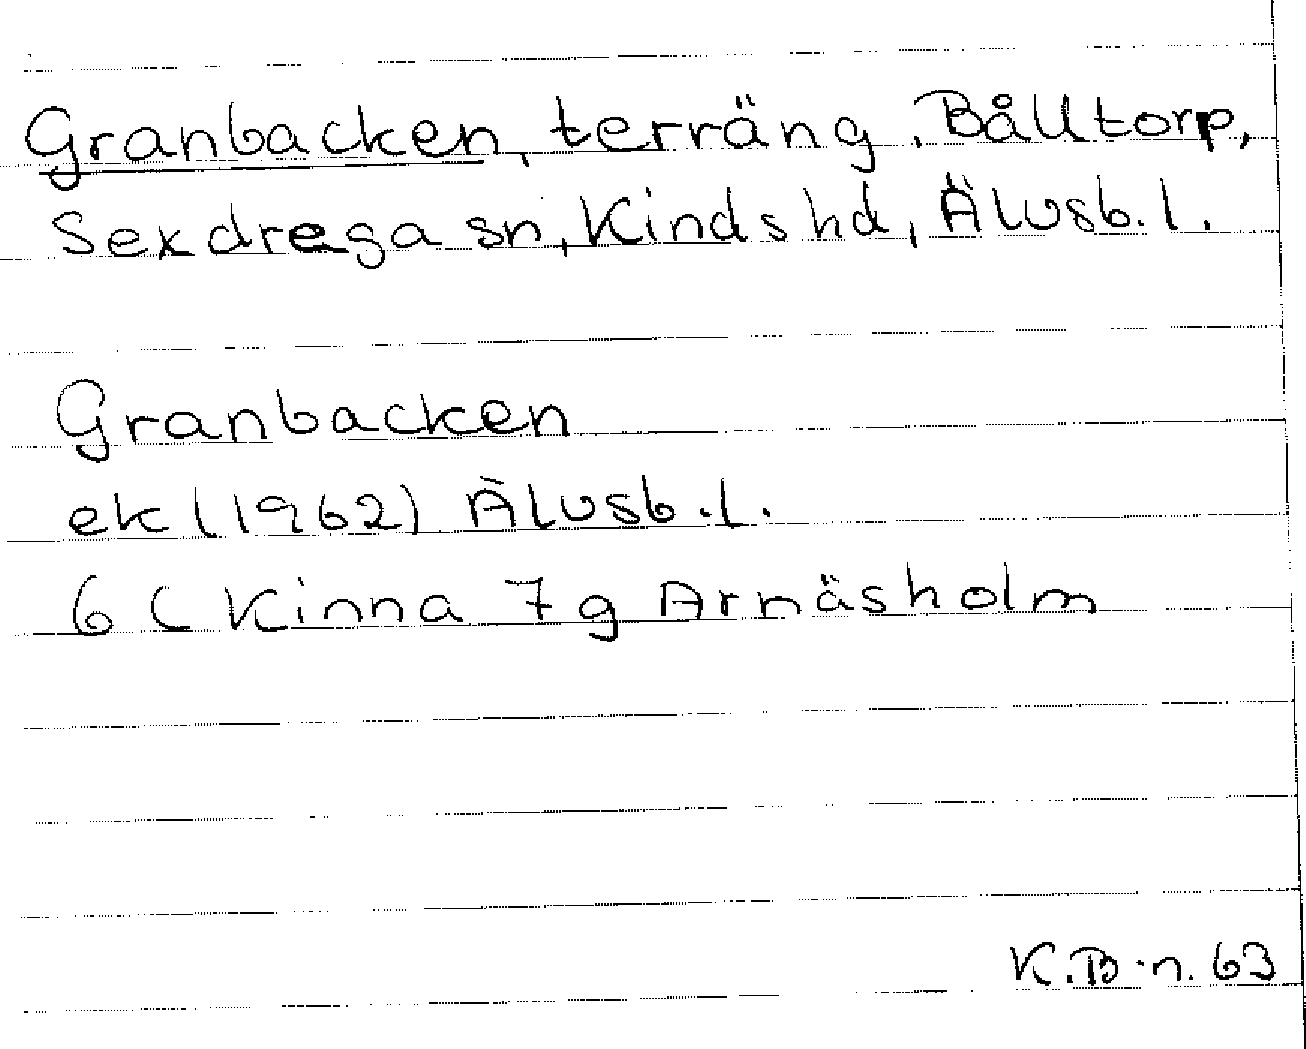 Granbacken, terräng, Bålltorp,
Sexdrega sn, Kinds hd, Älvsb. l.
Granbacken
ek (1962) Älvsb. l.
6 C Kinna 7 g Arnäsholm
K.B-n. 63